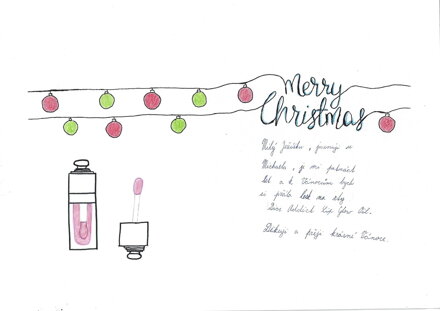 Merry
Christmas
Milý Ježíšku, jmenuji se
Michaela, je mi patnáct
let a k Vánocům bych
si přála lesk na rty
Dior Addict Lip Glow Oil.
Děkuji a přeji krásné Vánoce.